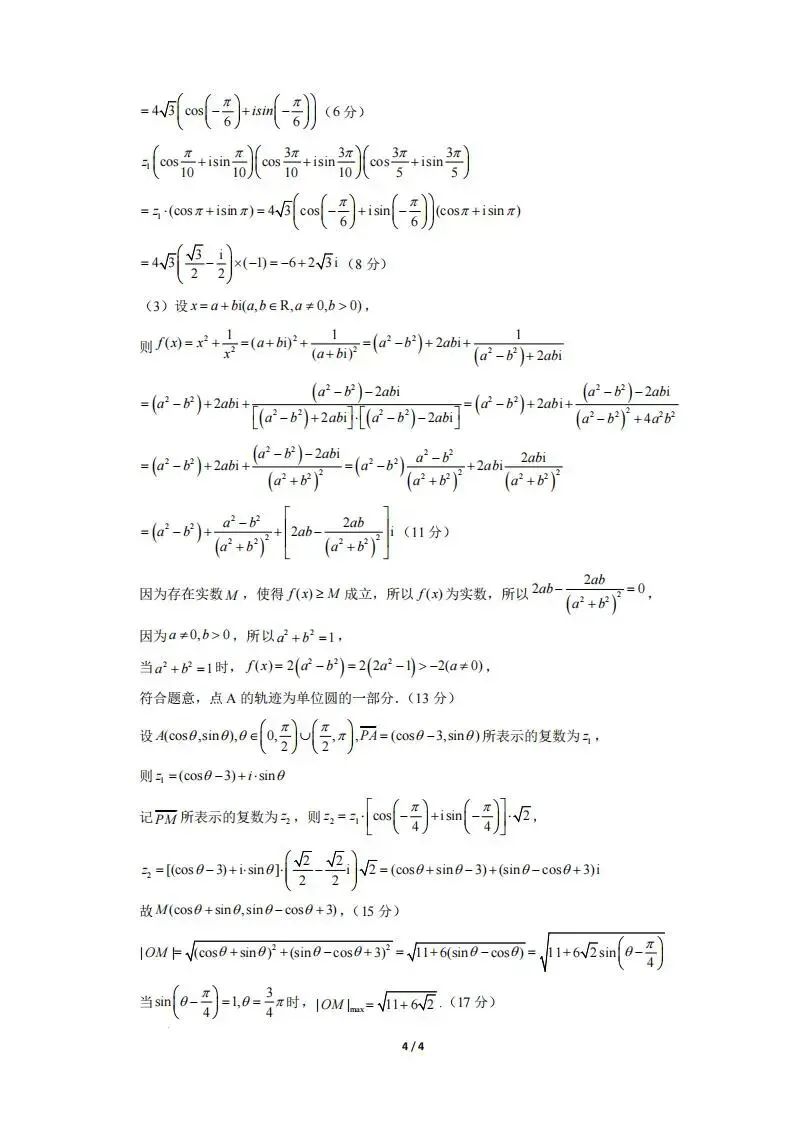 $=4\sqrt{3}\left(\cos\left(-\frac{\pi}{6}\right)+isin\left(-\frac{\pi}{6}\right)\right)$（6 分）
$z_1\left(\cos\frac{\pi}{10}+i\sin\frac{\pi}{10}\right)\left(\cos\frac{3\pi}{10}+i\sin\frac{3\pi}{10}\right)\left(\cos\frac{3\pi}{5}+i\sin\frac{3\pi}{5}\right)$
$=z_1\cdot(\cos\pi+i\sin\pi)=4\sqrt{3}\left(\cos\left(-\frac{\pi}{6}\right)+i\sin\left(-\frac{\pi}{6}\right)\right)(\cos\pi+i\sin\pi)$
$=4\sqrt{3}\left(\frac{\sqrt{3}}{2}-\frac{i}{2}\right)\times(-1)=-6+2\sqrt{3}i$（8 分）
（3）设 $x=a+bi(a,b\in R,a\neq 0,b>0)$，
则 $f(x)=x^2+\frac{1}{x^2}=(a+bi)^2+\frac{1}{(a+bi)^2}=\left(a^2-b^2\right)+2abi+\frac{1}{\left(a^2-b^2\right)+2abi}$
$=\left(a^2-b^2\right)+2abi+\frac{\left(a^2-b^2\right)-2abi}{\left[\left(a^2-b^2\right)+2abi\right]\cdot\left[\left(a^2-b^2\right)-2abi\right]}=\left(a^2-b^2\right)+2abi+\frac{\left(a^2-b^2\right)-2abi}{\left(a^2-b^2\right)^2+4a^2b^2}$
$=\left(a^2-b^2\right)+2abi+\frac{\left(a^2-b^2\right)-2abi}{\left(a^2+b^2\right)^2}=\left(a^2-b^2\right)\frac{a^2-b^2}{\left(a^2+b^2\right)^2}+2abi\frac{2abi}{\left(a^2+b^2\right)^2}$
$=\left(a^2-b^2\right)+\frac{a^2-b^2}{\left(a^2+b^2\right)^2}+\left[2ab-\frac{2ab}{\left(a^2+b^2\right)^2}\right]i$（11 分）
因为存在实数 $M$，使得 $f(x)\geq M$ 成立，所以 $f(x)$ 为实数，所以 $2ab-\frac{2ab}{\left(a^2+b^2\right)^2}=0$，
因为 $a\neq 0,b>0$，所以 $a^2+b^2=1$，
当 $a^2+b^2=1$ 时，$f(x)=2\left(a^2-b^2\right)=2\left(2a^2-1\right)>-2(a\neq 0)$，
符合题意，点 A 的轨迹为单位圆的一部分.（13 分）
设 $A(\cos\theta,\sin\theta),\theta\in\left(0,\frac{\pi}{2}\right)\cup\left(\frac{\pi}{2},\pi\right),\overline{PA}=(\cos\theta-3,\sin\theta)$ 所表示的复数为 $z_1$，
则 $z_1=(\cos\theta-3)+i\cdot\sin\theta$
记 $\overline{PM}$ 所表示的复数为 $z_2$，则 $z_2=z_1\cdot\left[\cos\left(-\frac{\pi}{4}\right)+i\sin\left(-\frac{\pi}{4}\right)\right]\cdot\sqrt{2}$，
$z_2=[(\cos\theta-3)+i\cdot\sin\theta]\cdot\left(\frac{\sqrt{2}}{2}-\frac{\sqrt{2}}{2}i\right)\sqrt{2}=(\cos\theta+\sin\theta-3)+(\sin\theta-\cos\theta+3)i$
故 $M(\cos\theta+\sin\theta,\sin\theta-\cos\theta+3)$，（15 分）
$|OM|=\sqrt{(\cos\theta+\sin\theta)^2+(\sin\theta-\cos\theta+3)^2}=\sqrt{11+6(\sin\theta-\cos\theta)}=\sqrt{11+6\sqrt{2}\sin\left(\theta-\frac{\pi}{4}\right)}$
当 $\sin\left(\theta-\frac{\pi}{4}\right)=1,\theta=\frac{3}{4}\pi$ 时，$|OM|_{\max}=\sqrt{11+6\sqrt{2}}$.（17 分）
4 / 4